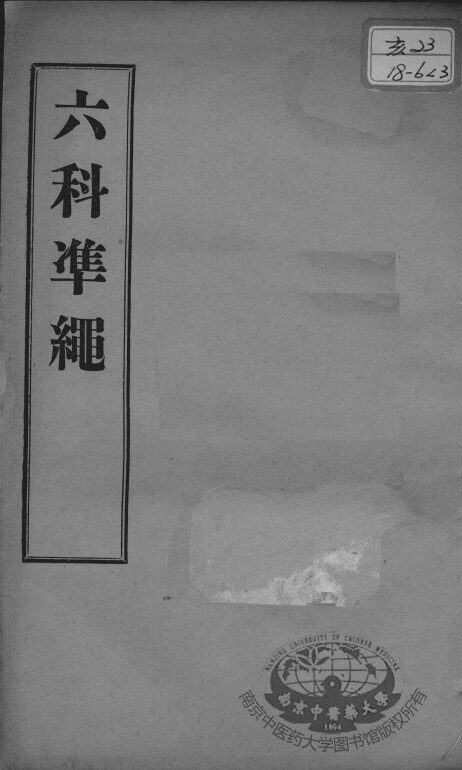 亥23
18-623
六科準繩
NANJING UNIVERSITY OF CHINESE MEDICINE
南京中醫藥大學
1954
南京中医药大学图书馆版权所有